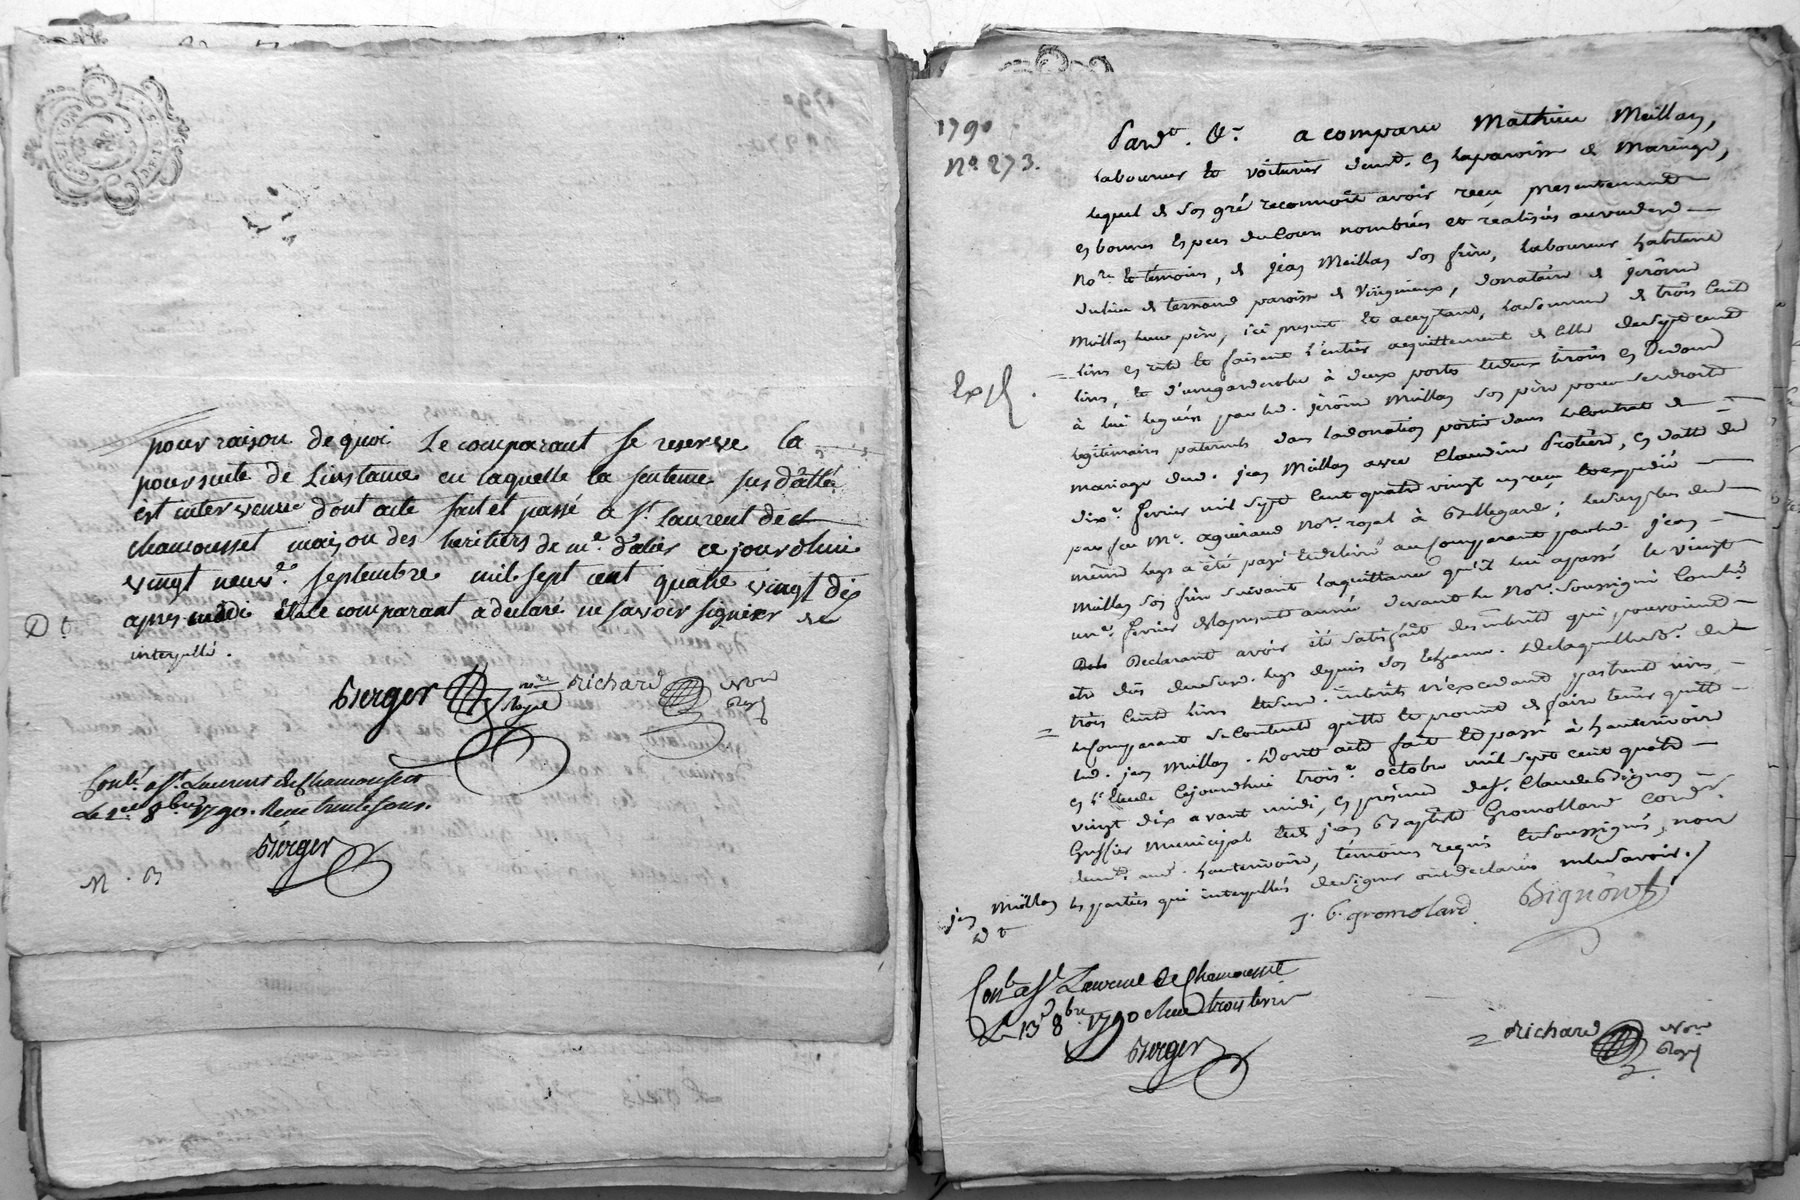 pour raison de quoi Le comparant se reserve la
poursuite de L'instance en laquelle la sentence sus d'attée
est intervenue dont acte fait et passé a St. Laurent de
chamousset maison des heritiers de me. d'alier ce jourdhui
vingt neuve. septembre mil sept cent quatre vingt dix
apres midi et le comparant a declaré ne savoir signer de
interpellé.
D t
Berger nore Royal Richard Nore Royl
Conlé. a St. Laurent de Chamousset
Le 2e 8bre 1790. Recu trente sous.
Berger
N. B
1790
No 273.
Pardt. &c. a comparu Mathieu Meillan,
laboureur et voiturier demt. en la paroisse de Maringe,
lequel de son gré reconnoit avoir reçu presentement
en bonnes especes du Cours nombrées et réalisées au vu dud.
nore. et témoins, de jean Meillan son frère, laboureur habitant
du lieu de ternand paroisse de Virigneux, donataire de jerôme
Meillan leur père, ici present et aceptant, la somme de trois Cent
livres en reste et faisant l'entier acquittement de celle de sept cent
livres, et d'une garderobe à deux portes et deux tiroirs
à lui leguée par led. jerôme Meillan son père pour ses droits
legitimaires paternels dans la donation portée dans le Contrat de
mariage dud. jean Meillan avec Claudine Protière, en datte du
dixe. fevrier mil sept Cent quatre vingt un reçu et expedié
par feu Me. aguiraud nore. royal à Bellegarde; le surplus dud.
même legs a été payé et delivré au Comparant par led. jean
Meillan son frère suivant la quittance qu'il lui a passé le vingt
une. fevrier de la presente année devant le Nore. soussigné Conlée.
Declarant avoir été satisfait des interets qui pouvoient
être dûs dud. legs depuis son echeance. De laquelle somme de
trois Cent livres et interets n'excedant pas trent livres,
le Comparant se Contente quitte et promet de faire tenir quitte
led. jean Meillan. Dont acte fait et passé à hauterivoire
en l'Etude Cejourdhui troise. octobre mil sept cent quatre
vingt dix avant midi, en présence de sr. Claude Bignon
Greffier municipal et de jean Baptiste Gromollard Cordr.
demt. aud. hauterivoire, témoins requis et soussignés, non
les parties qui interpellées de signer ont declarées ne le savoir./
Exp.
jean Meillan
D t
J. B. gromolard Bignon
Conlé a St Laurent de Chamousset
Le 13e 8bre 1790 Recu trois livres
Berger
Richard Nore Royl